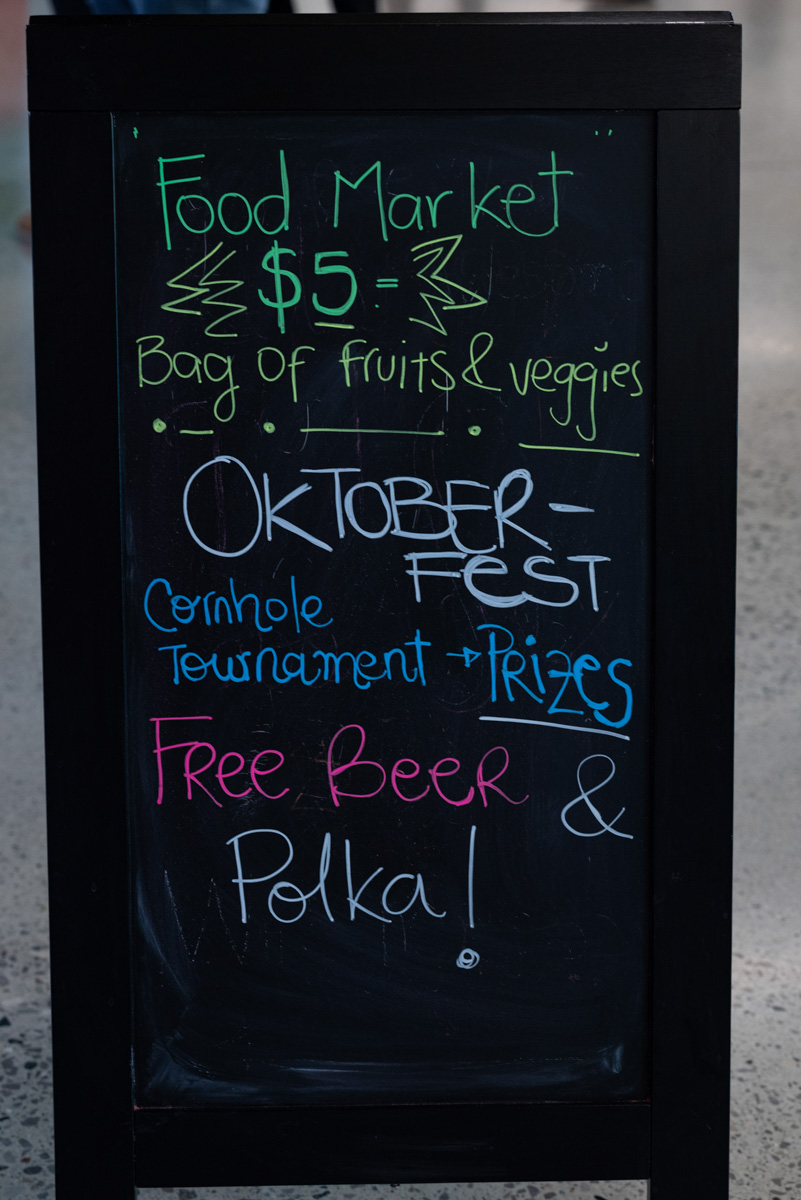 Food Market
$5 =
Bag of fruits & veggies
OKTOBER-
FEST
Cornhole
Tournament → PRIZES
FREE BEER &
Polka!